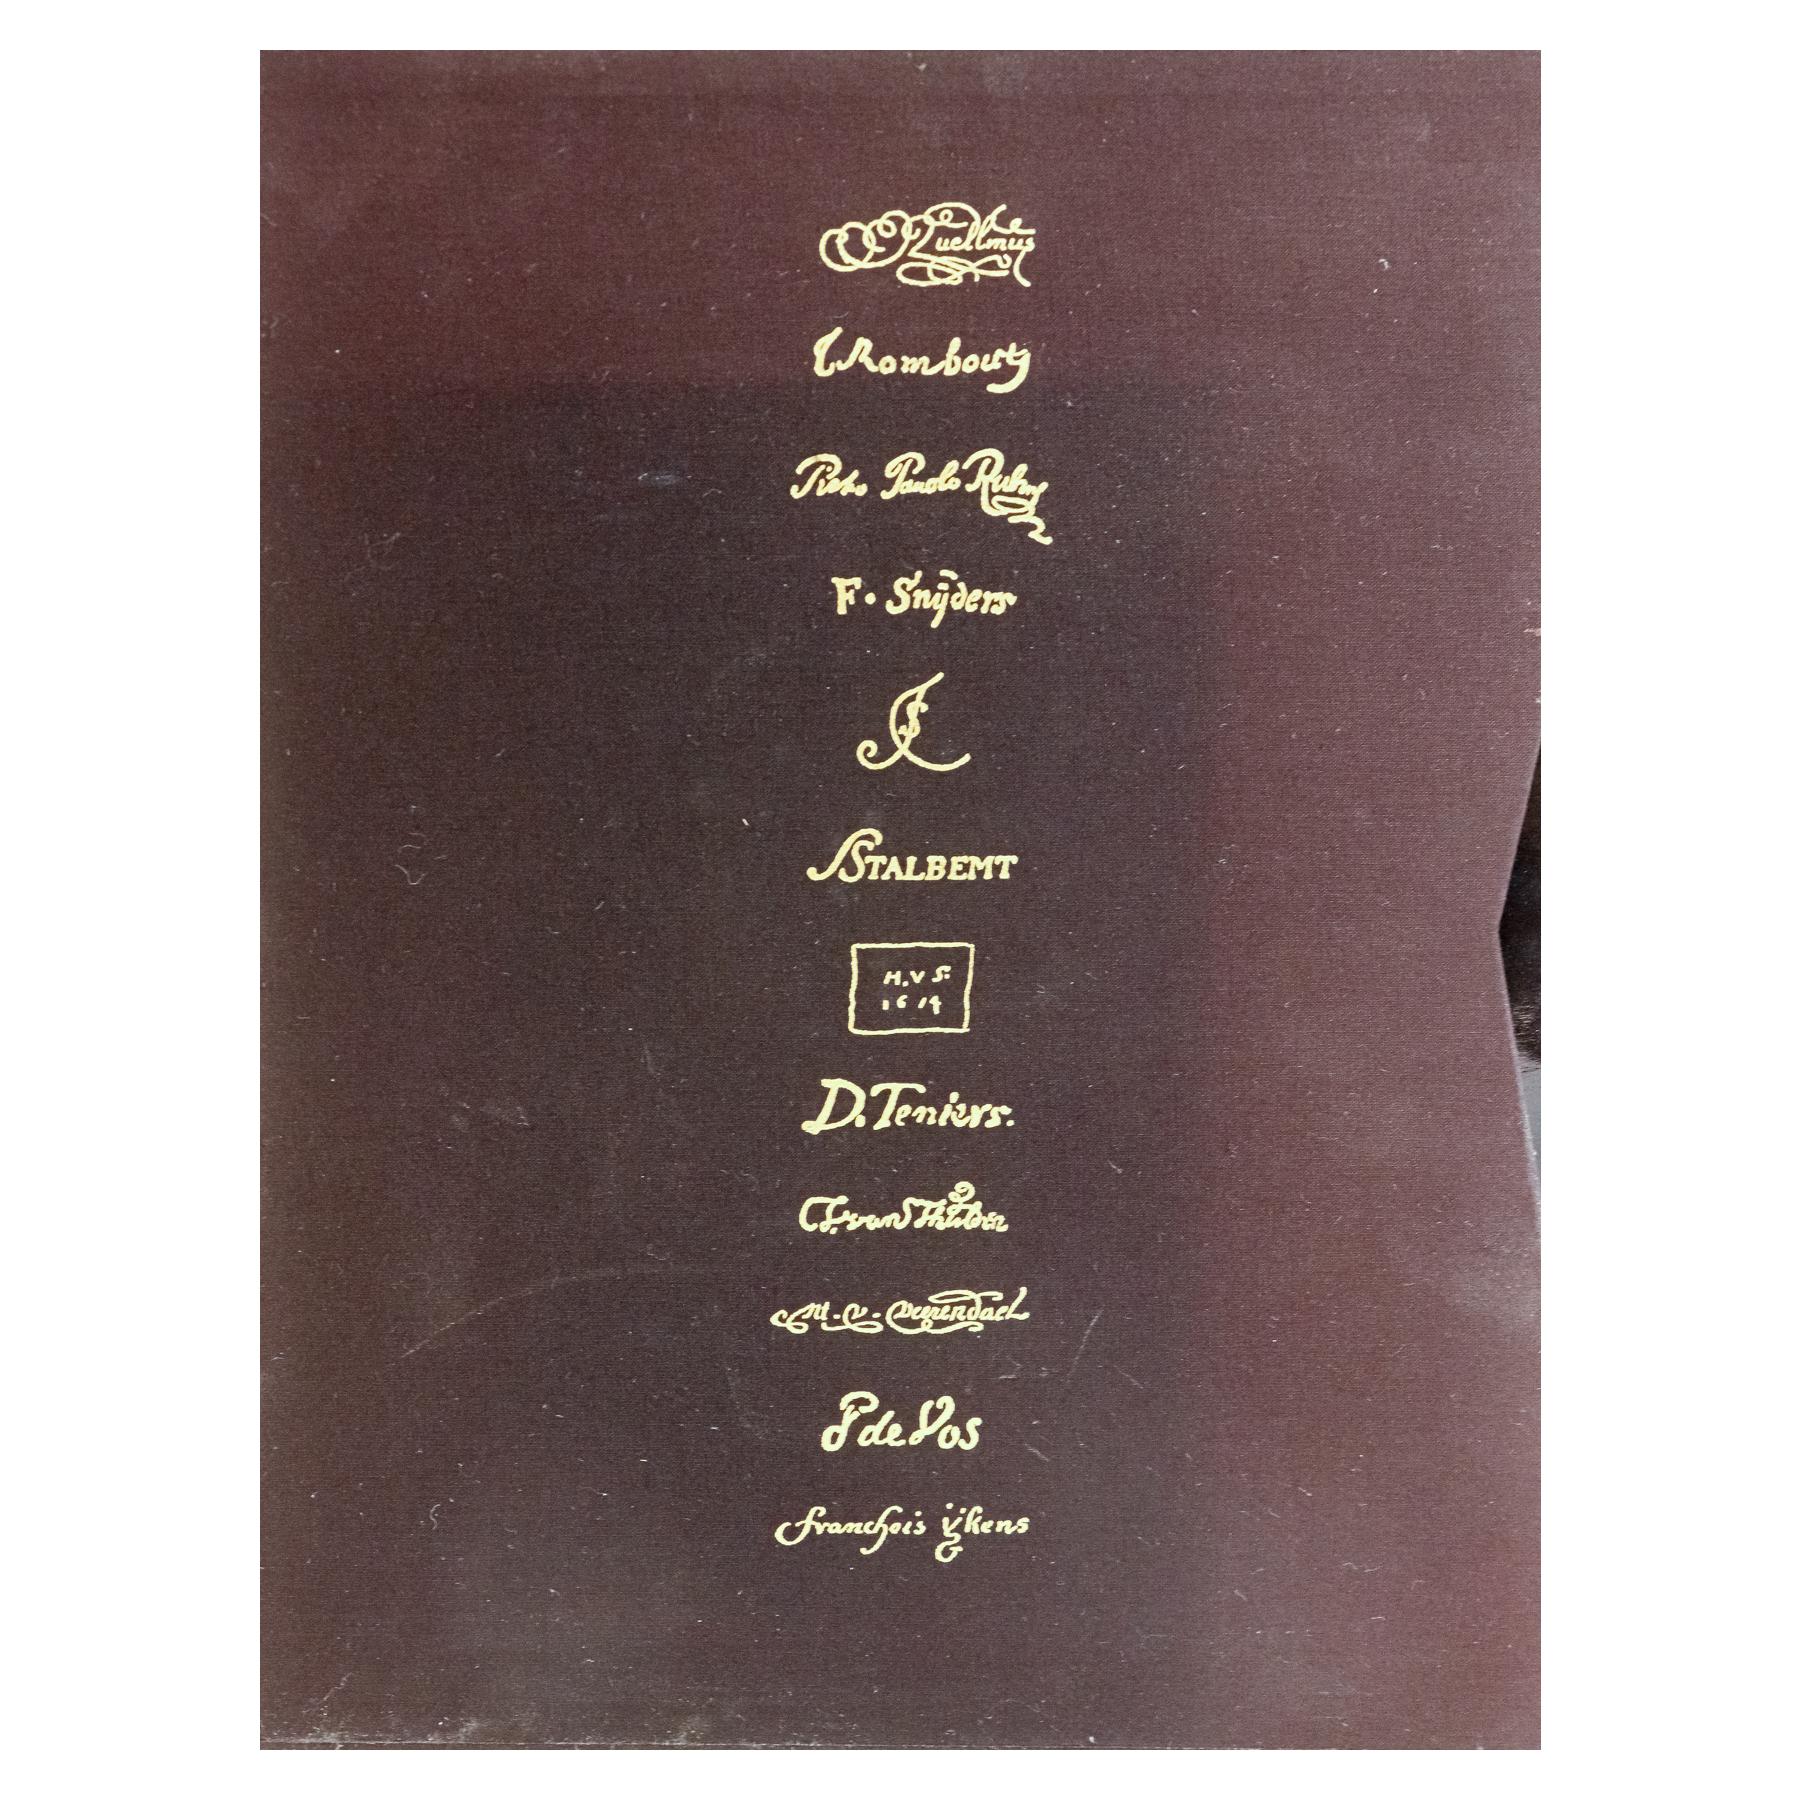 Quellinus
T Rombouts
Pietro Pauolo Rubens
F. Snÿders
STALBEMT
H.V S.
1614
D. Teniers.
T. van Thulden
M. v. Verendael
P de Vos
franchois ÿkens